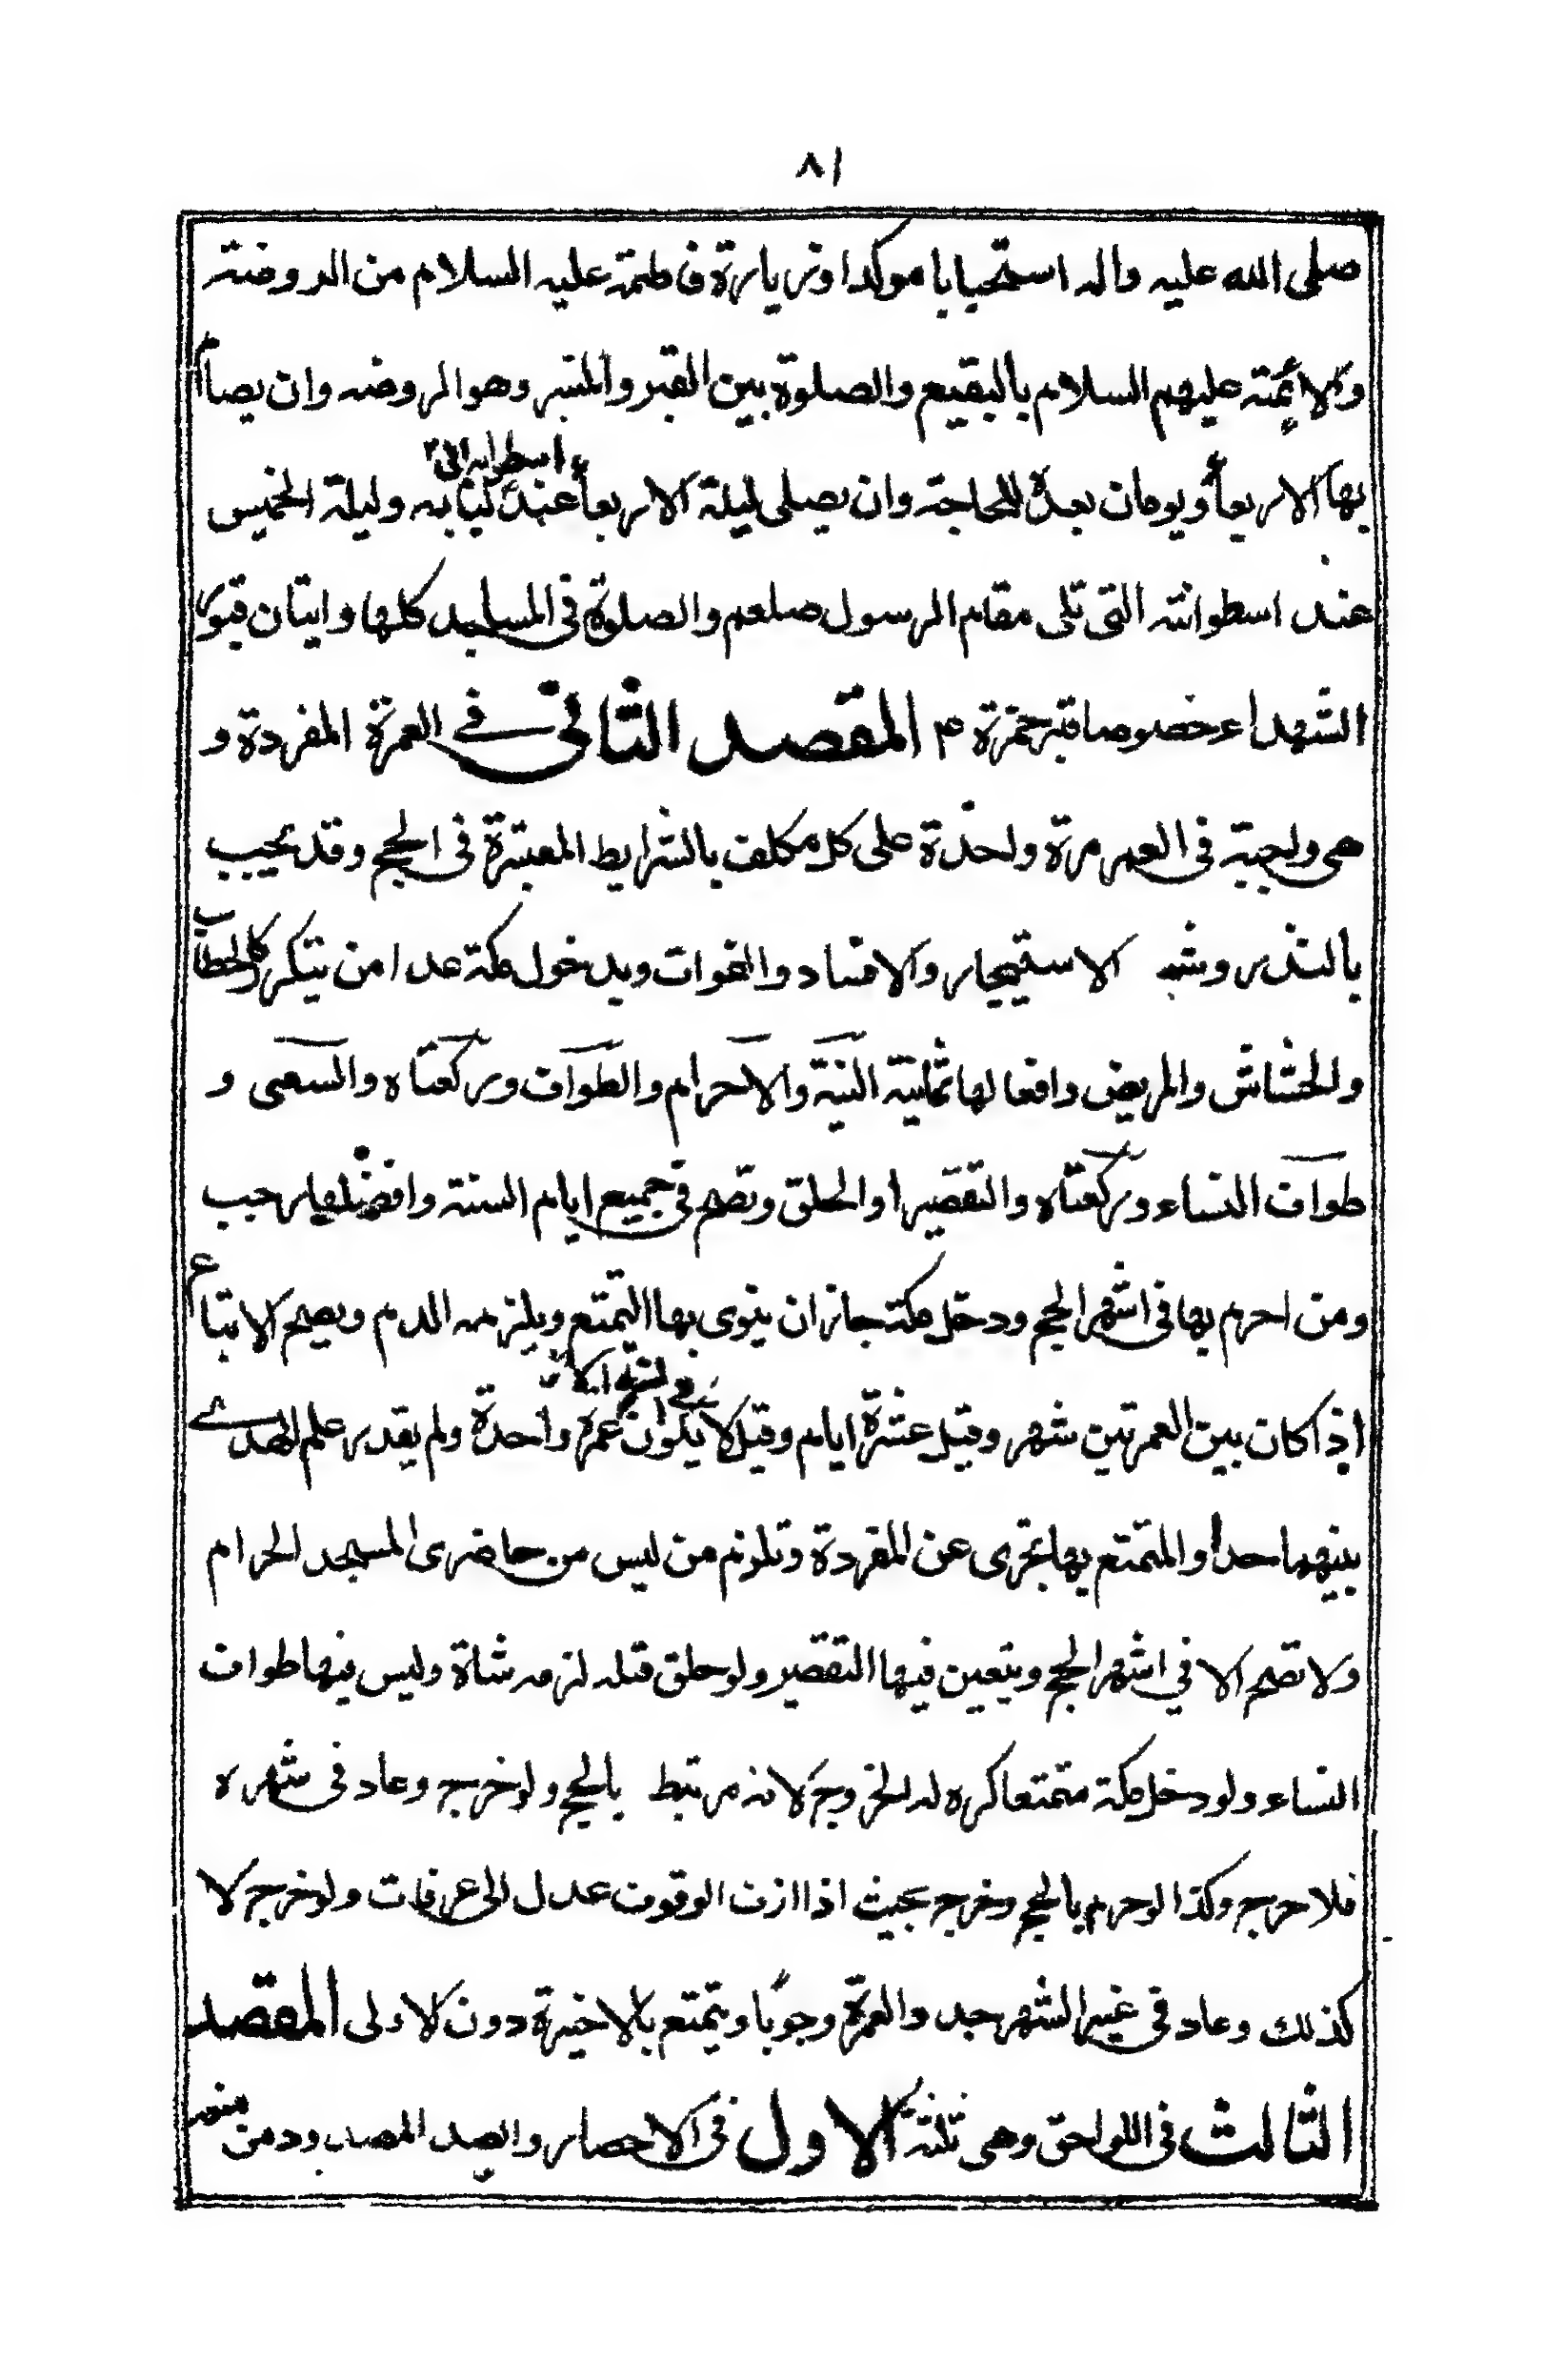 ٨١
صلى الله عليه واله استحبابا موكدا وزيارة فاطمة عليه السلام من الروضة
والائمة عليهم السلام بالبقيع والصلوة بين القبر والمنبر وهو الروضه وان يصام
بها الاربعأ ويومان بعدة للحاجة وان يصلى ليلة الاربعأ عند اسطوانة ابى لبابه وليلة الخميس
عند اسطوانته التى تلى مقام الرسول صلعم والصلوة فى المساجد كلها واتيان قبور
الشهداء خصوصا قبر حمزة ع المقصد الثانى فى العمرة المفردة و
هى واجبة فى العمر مرة واحدة على كل مكلف بالشرايط المعتبرة فى الحج وقد يجب
بالنذر وشبه الاستيجار والافساد والفوات وبدخول مكة عدا من يتكرر كالحطاب
والحشاش والمريض وافعالها ثمانية النية والاحرام والطواف وركعتاه والسعى و
طواف النساء وركعتاه والتقصير او الحلق وتصح فى جميع ايام السنة وافضلها رجب
ومن احرم بها فى اشهر الحج ودخل مكة جاز ان ينوى بها التمتع ويلزمه الدم ويصح الاتباع
اذا كان بين العمرتين شهر وقيل عشرة ايام وقيل لا يكون فى السنة الا عمرة واحدة ولم يقدر علم الهدى
بينهما حدا والمتمتع بها تجزى عن المفردة وتلزم من ليس من حاضرى المسجد الحرام
ولا تصح الا فى اشهر الحج ويتعين فيها التقصير ولو حلق قبله لزمه شاة وليس فيها طواف
النساء ولو دخل مكة متمتعا كره له الخروج لانه مرتبط بالحج ولو خرج وعاد فى شهره
فلا حرج وكذا لو احرم بالحج وخرج بحيث اذا ازف الوقوف عدل الى عرفات ولو خرج لا
كذلك وعاد فى غير الشهر جدد العمرة وجوبا ويتمتع بالاخيرة دون الاولى المقصد
الثالث فى اللواحق وهى ثلثة الاول فى الاحصار والصد المصدود من منعه